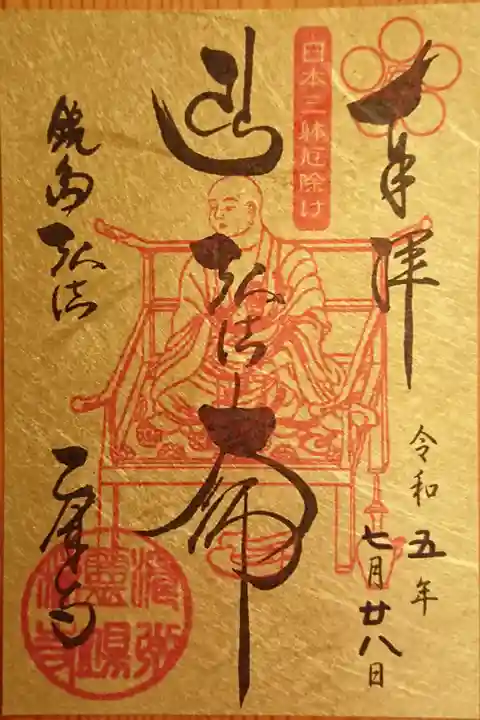 奉拝
日本三躰厄除け
令和五年
七月廿八日
弘法大師
鏡島弘法
乙津寺